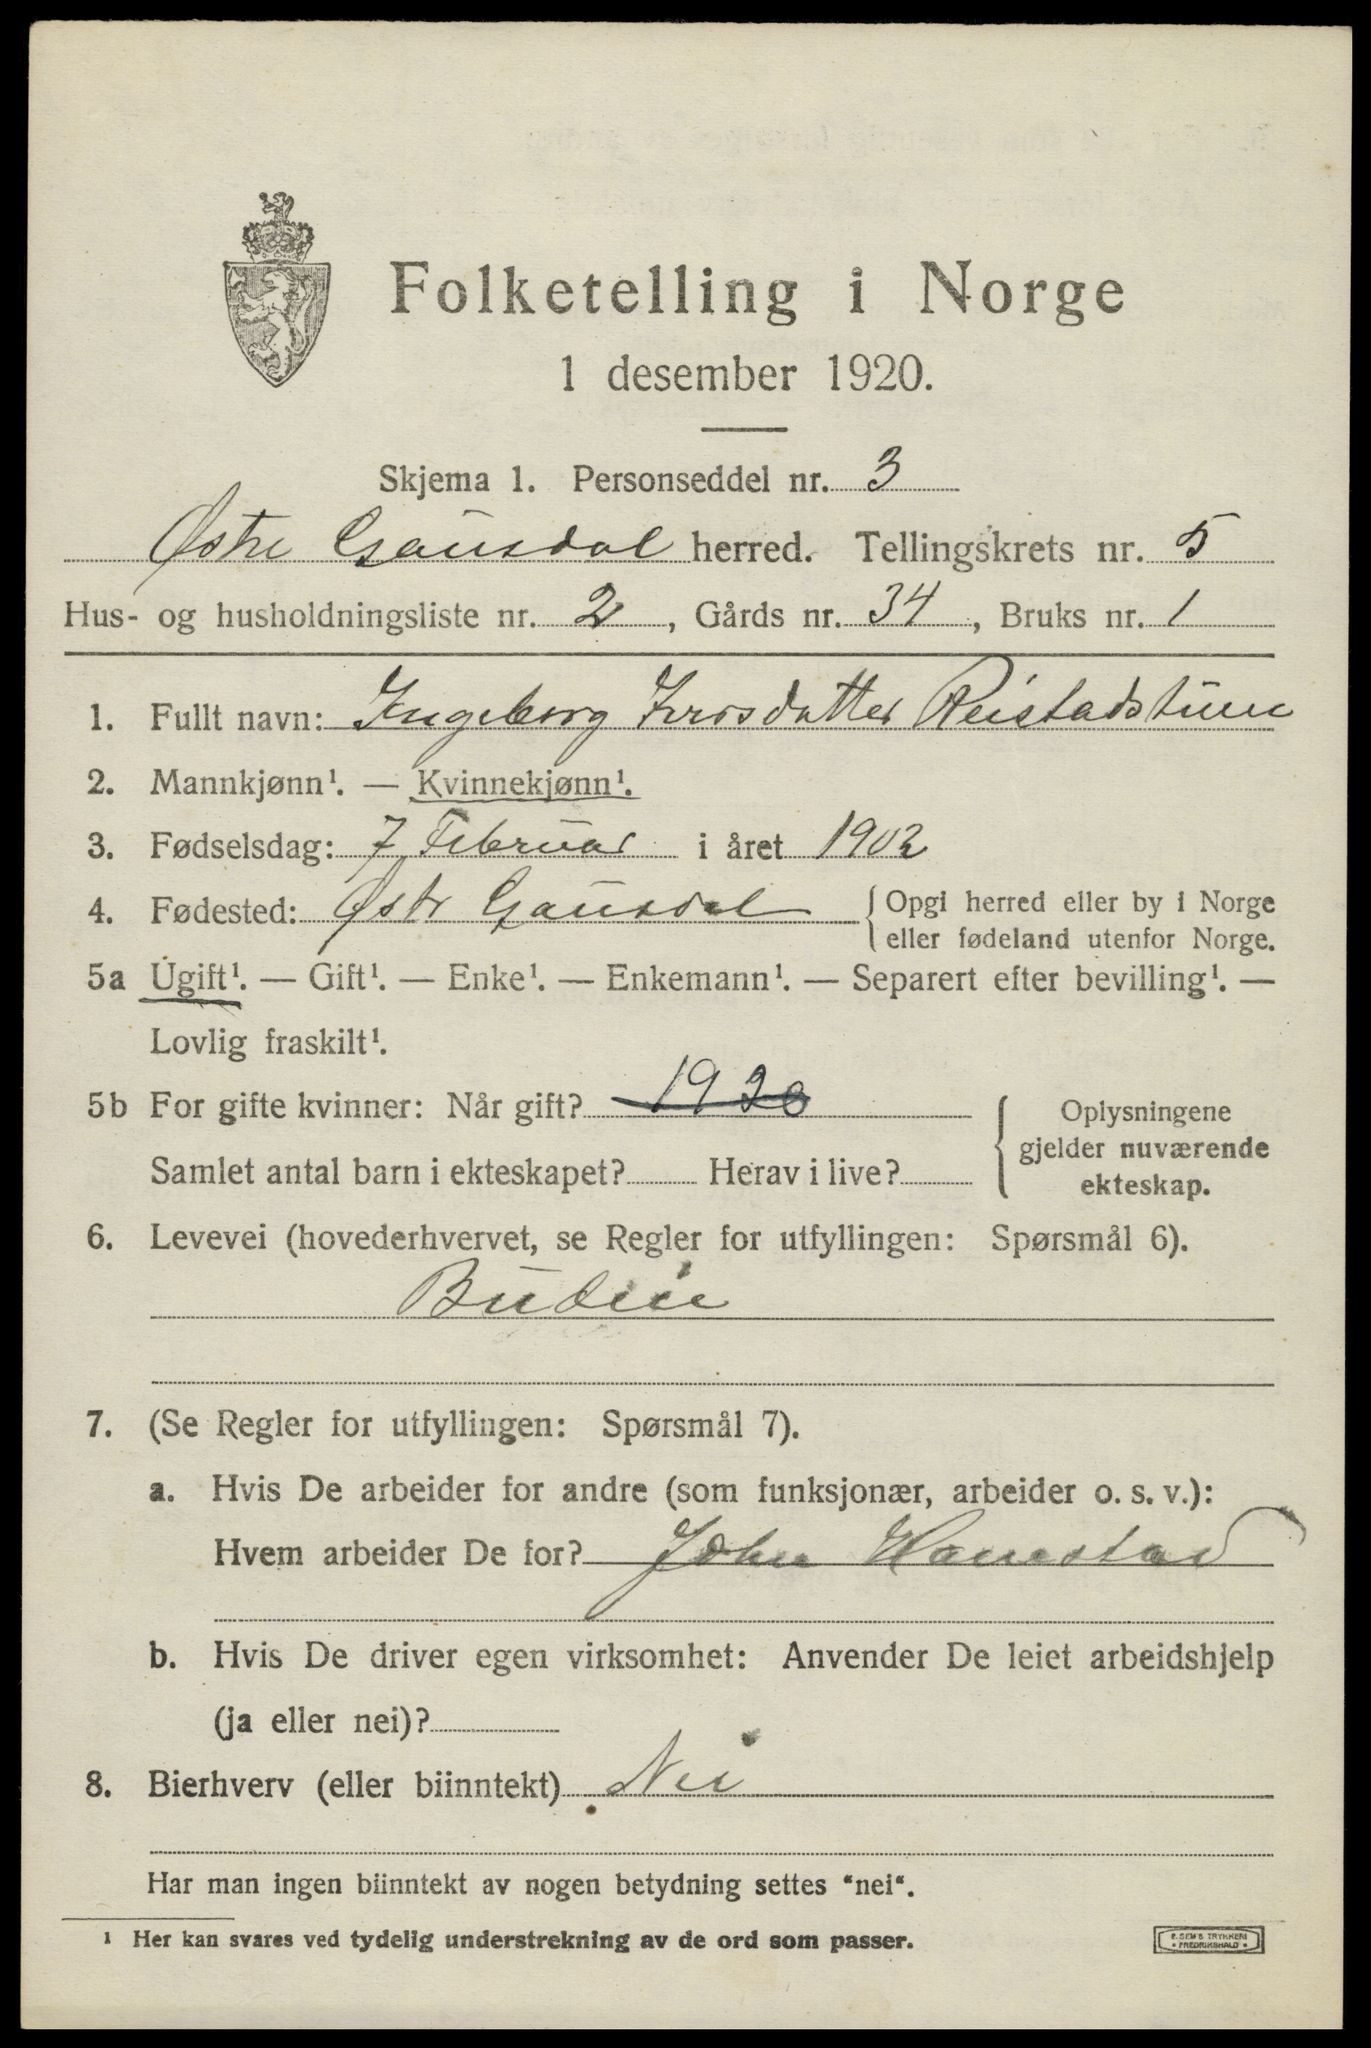 Folketelling i Norge
1 desember 1920.
Skjema 1. Personseddel nr. 3
Østre Gausdal herred. Tellingskrets nr. 5
Hus- og husholdningsliste nr. 2, Gårds nr. 34, Bruks nr. 1
1. Fullt navn: Ingeborg Iversdatter Reistadstuen
2. Mannkjønn¹. — Kvinnekjønn¹.
3. Fødselsdag: 7 Februar i året 1902
4. Fødested: Østr Gausdal { Opgi herred eller by i Norge
eller fødeland utenfor Norge.
5a Ugift¹. — Gift¹. — Enke¹. — Enkemann¹. — Separert efter bevilling¹. —
Lovlig fraskilt¹.
5b For gifte kvinner: Når gift? 1920
Samlet antal barn i ekteskapet? Herav i live?
{ Oplysningene
gjelder nuværende
ekteskap.
6. Levevei (hovederhvervet, se Regler for utfyllingen: Spørsmål 6).
Budeie
7. (Se Regler for utfyllingen: Spørsmål 7).
a. Hvis De arbeider for andre (som funksjonær, arbeider o. s. v.):
Hvem arbeider De for? John
b. Hvis De driver egen virksomhet: Anvender De leiet arbeidshjelp
(ja eller nei)?
8. Bierhverv (eller biinntekt) Nei
Har man ingen biinntekt av nogen betydning settes "nei".
¹ Her kan svares ved tydelig understrekning av de ord som passer.
E. SEM'S TRYKKERI
• FREDRIKSHALD •